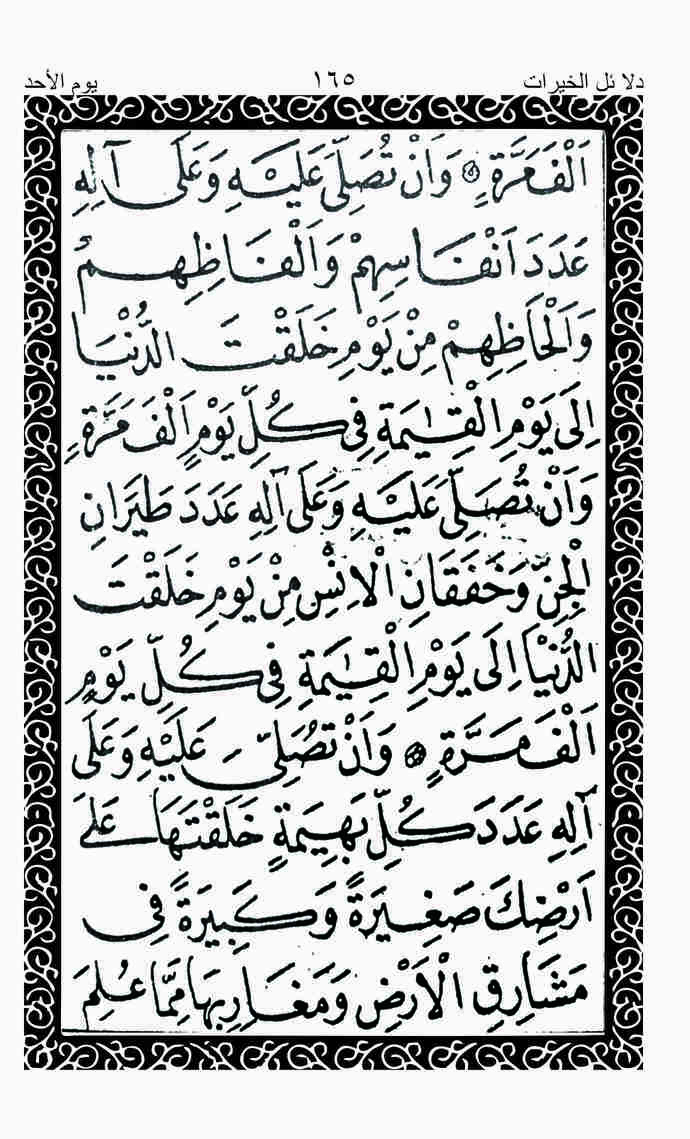 دلائل الخيرات ١٦٥ يوم الأحد
اَلْفَ مَرَّةٍ وَاَنْ تُصَلِّىَ عَلَيْهِ وَعَلَى آلِهِ
عَدَدَ اَنْفَاسِهِمْ وَاَلْفَاظِهِمْ
وَاَلْحَاظِهِمْ مِنْ يَوْمِ خَلَقْتَ الدُّنْيَا
اِلَى يَوْمِ الْقِيٰمَةِ فِى كُلِّ يَوْمٍ اَلْفَ مَرَّةٍ
وَاَنْ تُصَلِّىَ عَلَيْهِ وَعَلَى آلِهِ عَدَدَ طَيَرَانِ
الْجِنِّ وَخَفَقَانِ الْاِنْسِ مِنْ يَوْمِ خَلَقْتَ
الدُّنْيَا اِلَى يَوْمِ الْقِيٰمَةِ فِى كُلِّ يَوْمٍ
اَلْفَ مَرَّةٍ وَاَنْ تُصَلِّىَ عَلَيْهِ وَعَلَى
آلِهِ عَدَدَ كُلِّ بَهِيمَةٍ خَلَقْتَهَا عَلَى
اَرْضِكَ صَغِيرَةً وَكَبِيرَةً فِى
مَشَارِقِ الْاَرْضِ وَمَغَارِبِهَا مِمَّا عُلِمَ